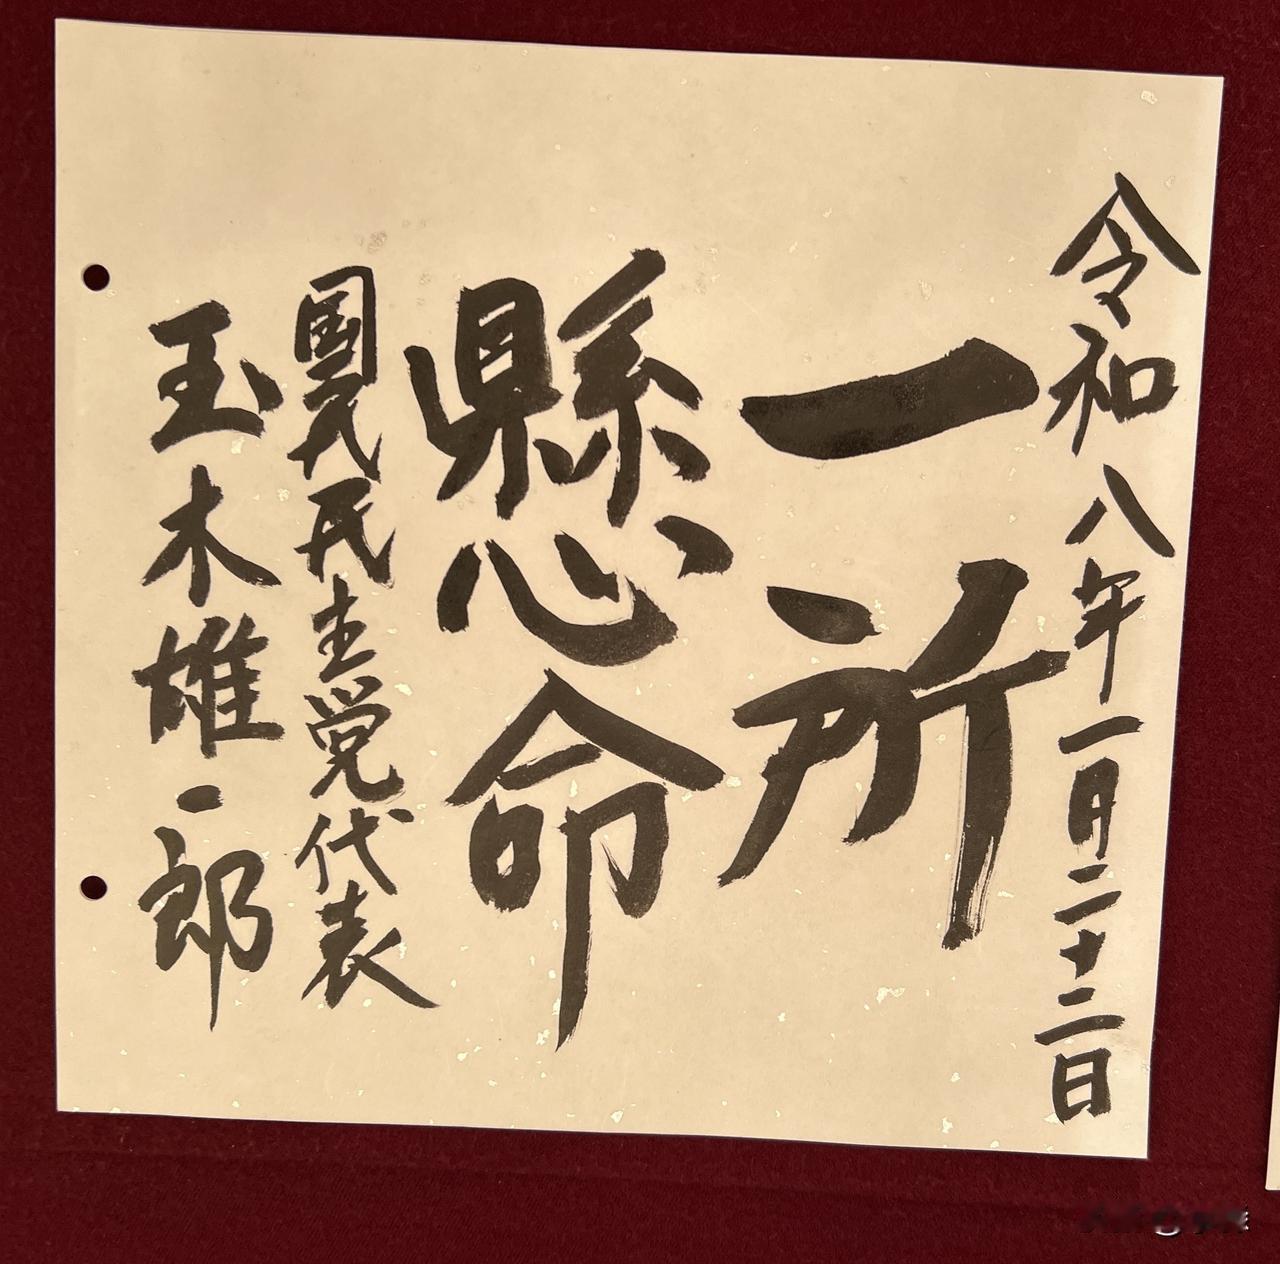 令和八年一月二十二日
一所
懸命
国民民主党代表
玉木雄一郎